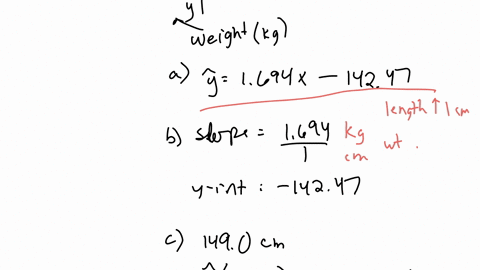 y|
weight (kg)
a) ŷ = 1.694x − 142.47
length ↑ 1 cm
b) slope = 1.694/1 kg/cm wt.
y-int : −142.47
c) 149.0 cm